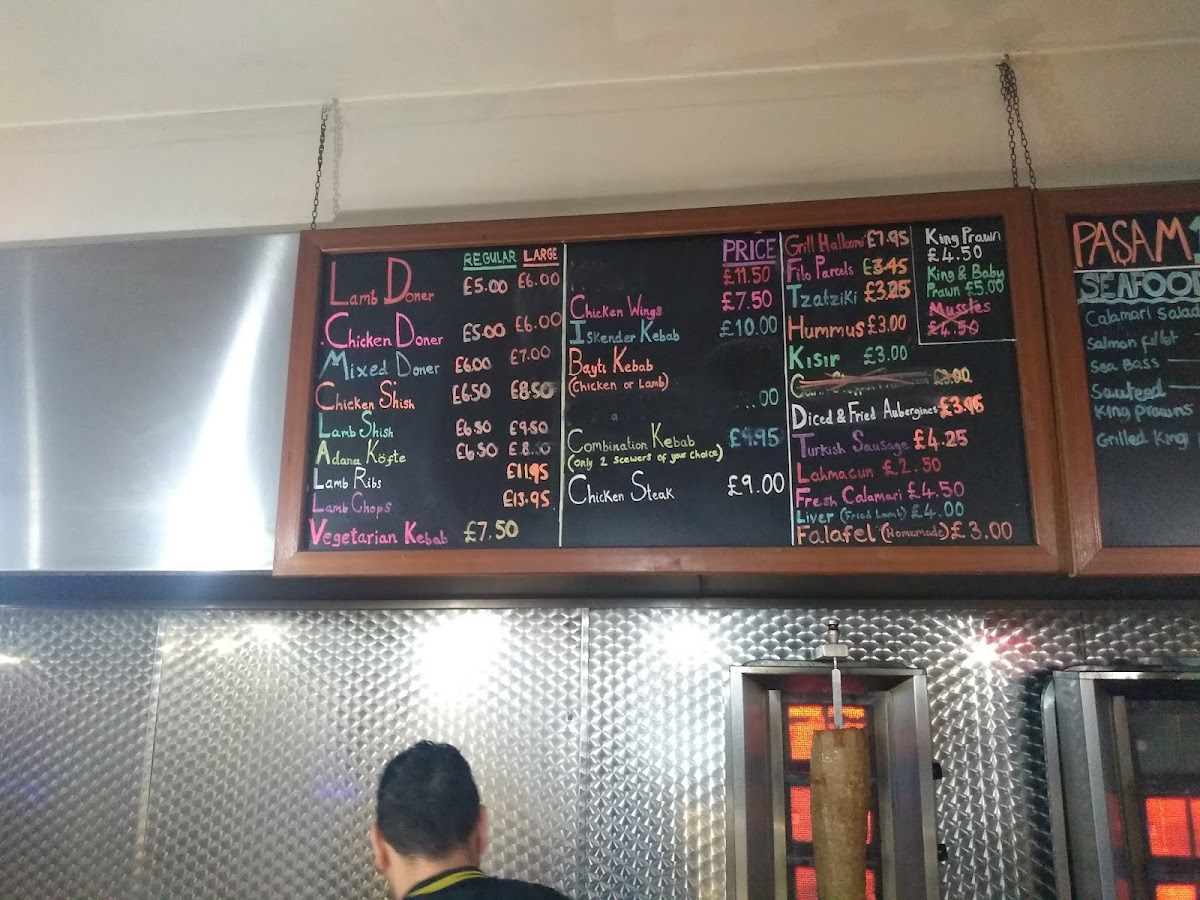 REGULAR LARGE
Lamb Doner £5.00 £6.00
Chicken Doner £5.00 £6.00
Mixed Doner £6.00 £7.00
Chicken Shish £6.50 £8.50
Lamb Shish £6.50 £9.50
Adana Köfte £6.50 £8.50
Lamb Ribs £11.95
Lamb Chops £13.95
Vegetarian Kebab £7.50
PRICE
£11.50
Chicken Wings £7.50
Iskender Kebab £10.00
Bayti Kebab
(Chicken or Lamb)
Combination Kebab £9.95
(only 2 scewers of your choice)
Chicken Steak £9.00
Grill Halloumi £7.95
Filo Parcels £3.45
Tzatziki £3.25
Hummus £3.00
Kisir £3.00
Diced & Fried Aubergines £3.95
Turkish Sausage £4.25
Lahmacun £2.50
Fresh Calamari £4.50
Liver (Fried Lamb) £4.00
Falafel (Homemade) £3.00
King Prawn
£4.50
King & Baby
Prawn £5.00
Mussles
£4.50
PASAM
SEAFOO
Calamari Salad
Salmon fillet
Sea Bass
Sauteed
King prawns
Grilled King